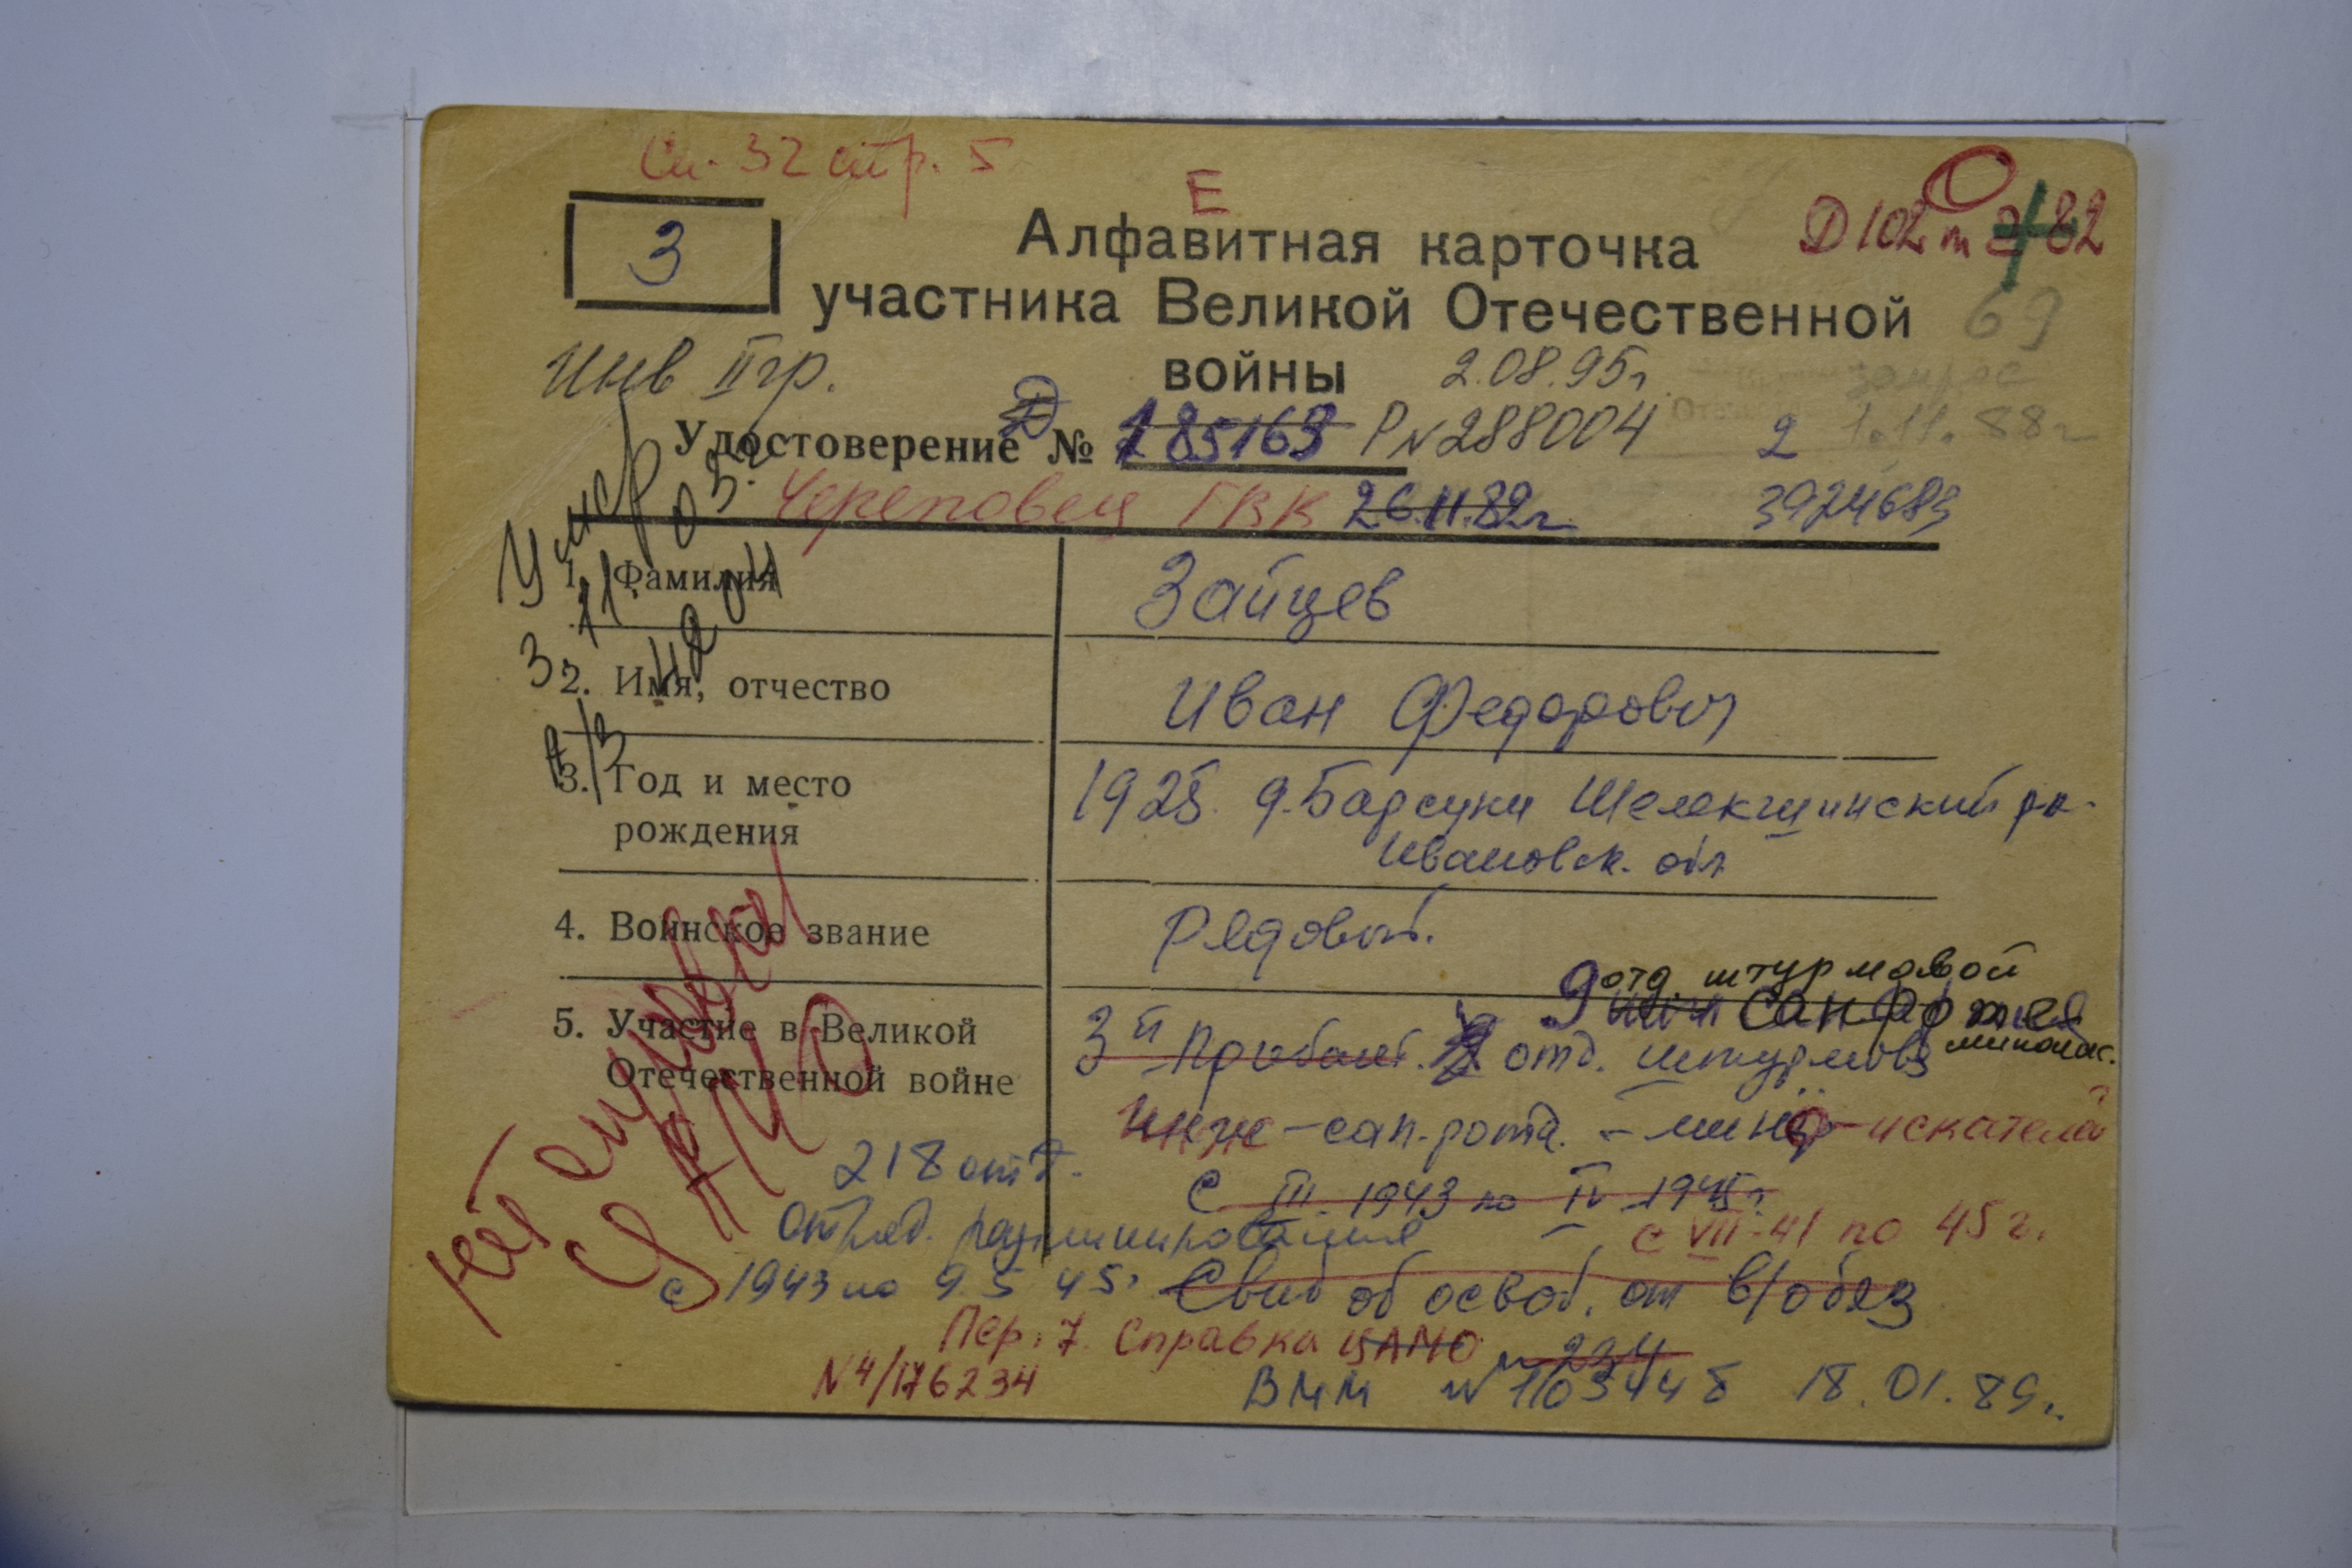 См. 32 стр. 5
Е
Д 102 т 2 82
З
Алфавитная карточка
участника Великой Отечественной
войны
69
Инв II гр.
2.08.95г
запрос
1.11.88г
Удостоверение Д № 185163 Р N 288004
2
3924683
Череповец ГВК 26.11.82г
Умер
3.11.03г
на он
а/з
1. Фамилия Зайцев
2. Имя, отчество Иван Федорович
3. Год и место 1925. д. Барсуки Шелекшинский р-
рождения Ивановск. обл
4. Воинское звание Рядовой.
9 отд штурмовой
5. Участие в Великой 3й Прибалт. отд. штурмов
Отечественной войне
инж-сап.рота. - минёр-искатель
218 отд.
С III. 1943 по IV 1945г
отряд. разминирования
с VII-41 по 45 г.
с 1943 по 9.5 45г
Свид об освоб. от в/обяз
Пер. 7. Справка ЦАМО
234
N4/176234
ВММ N 1103448 18.01.89г.
Нет справки
ЦАМО